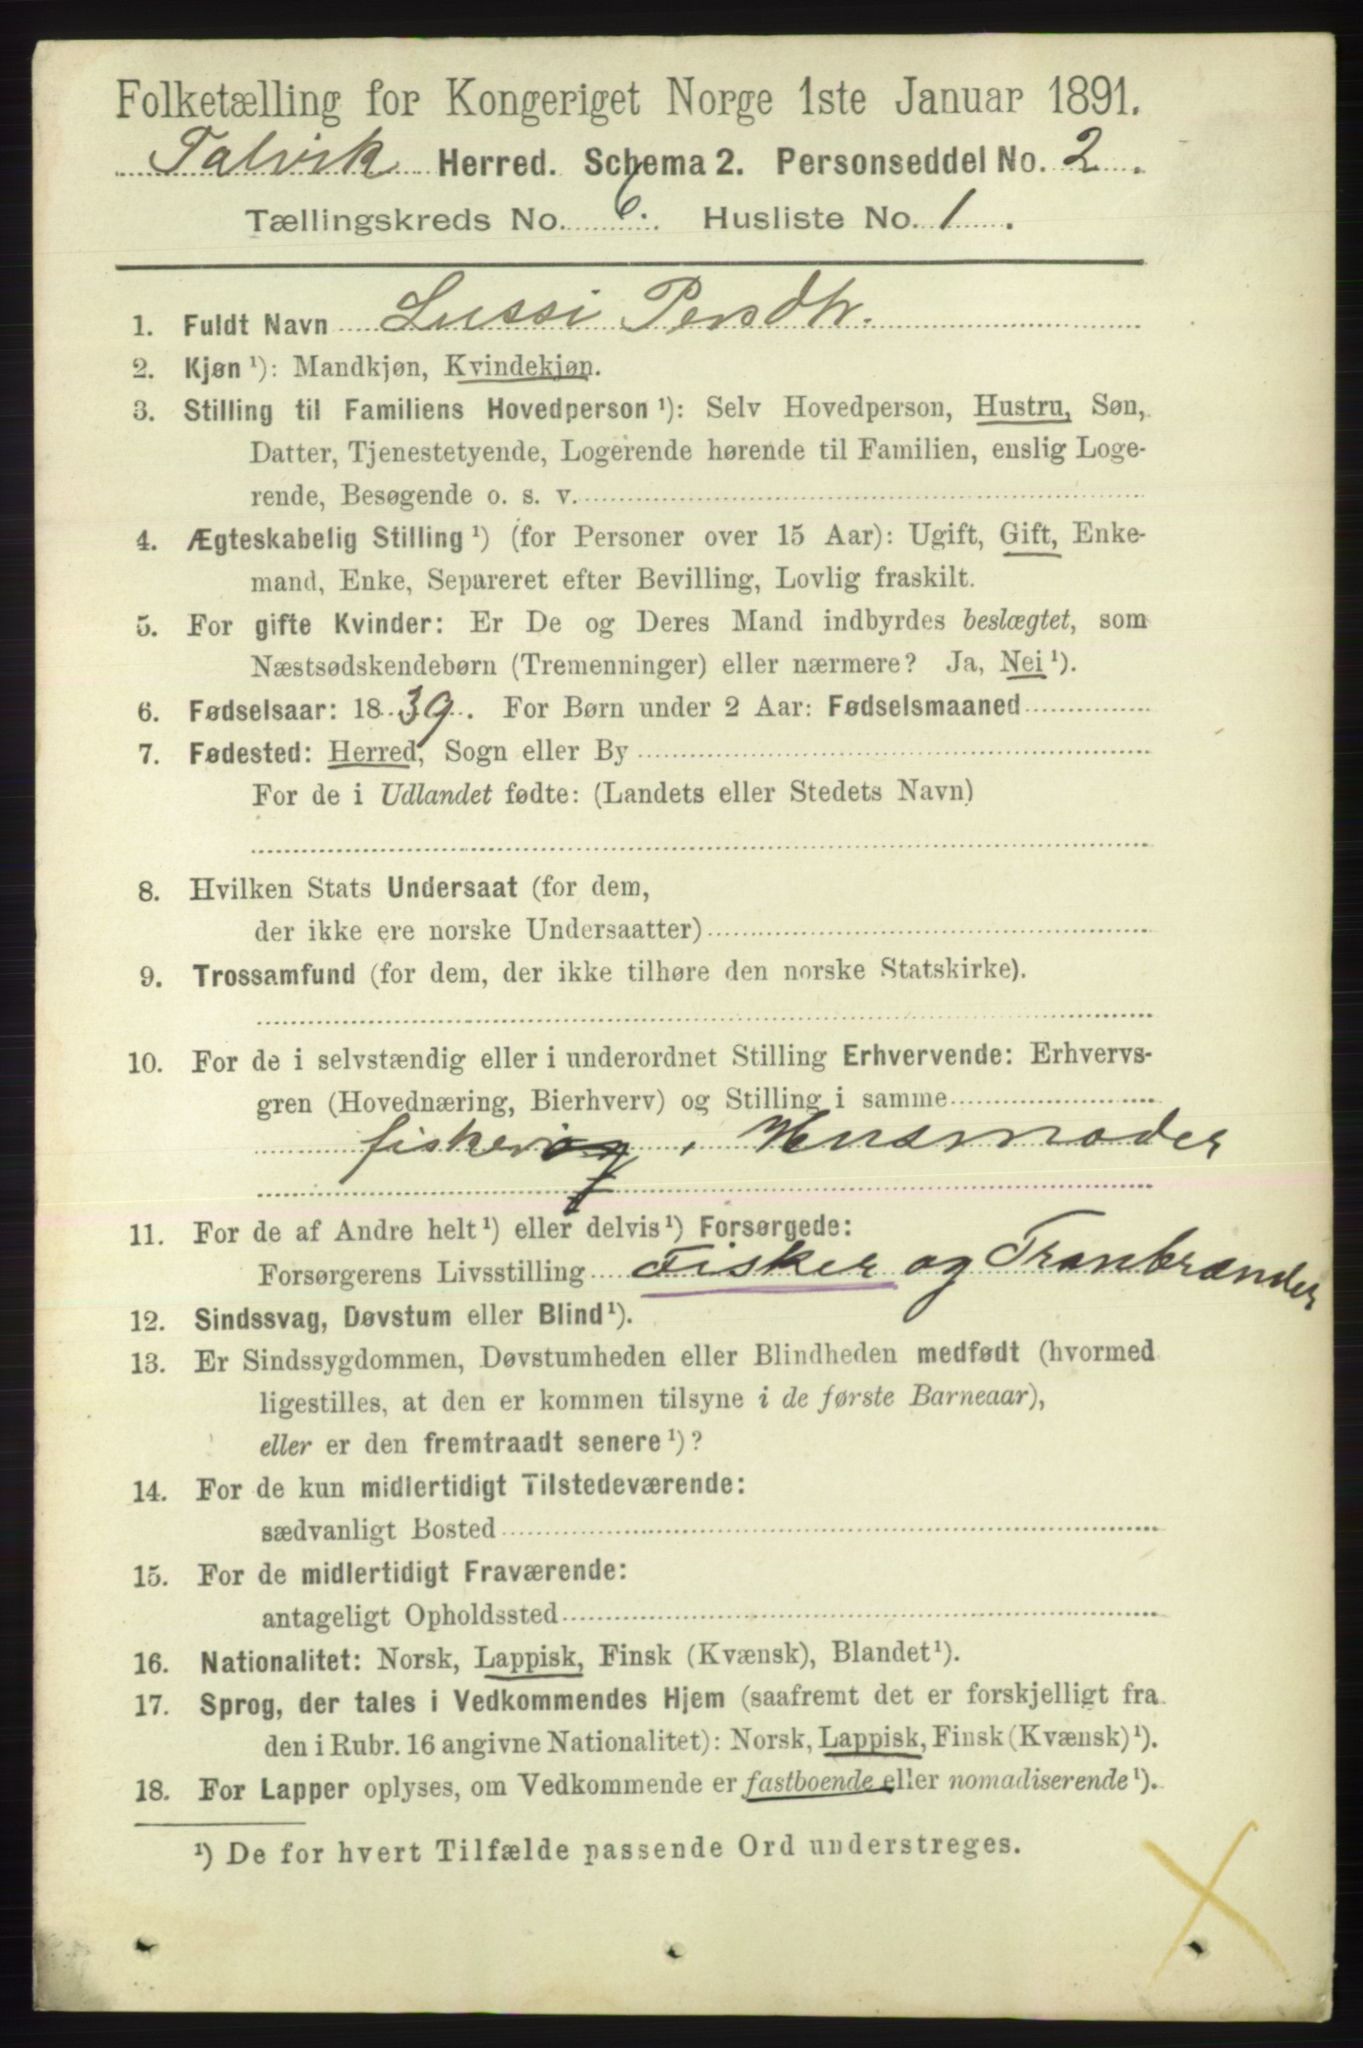 Folketælling for Kongeriget Norge 1ste Januar 1891.
Talvik Herred. Schema 2. Personseddel No. 2.
Tællingskreds No. 6. Husliste No. 1.
1. Fuldt Navn Lussi Persdtr.
2. Kjøn ¹): Mandkjøn, Kvindekjøn.
3. Stilling til Familiens Hovedperson ¹): Selv Hovedperson, Hustru, Søn,
Datter, Tjenestetyende, Logerende hørende til Familien, enslig Loge-
rende, Besøgende o. s. v.
4. Ægteskabelig Stilling ¹) (for Personer over 15 Aar): Ugift, Gift, Enke-
mand, Enke, Separeret efter Bevilling, Lovlig fraskilt.
5. For gifte Kvinder: Er De og Deres Mand indbyrdes beslægtet, som
Næstsødskendebørn (Tremenninger) eller nærmere? Ja, Nei ¹).
6. Fødselsaar: 1839. For Børn under 2 Aar: Fødselsmaaned
7. Fødested: Herred, Sogn eller By
For de i Udlandet fødte: (Landets eller Stedets Navn)
8. Hvilken Stats Undersaat (for dem,
der ikke ere norske Undersaatter)
9. Trossamfund (for dem, der ikke tilhøre den norske Statskirke).
10. For de i selvstændig eller i underordnet Stilling Erhvervende: Erhvervs-
gren (Hovednæring, Bierhverv) og Stilling i samme
Husmoder
11. For de af Andre helt ¹) eller delvis ¹) Forsørgede:
Forsørgerens Livsstilling Fisker og Tranbrænder
12. Sindssvag, Døvstum eller Blind ¹).
13. Er Sindssygdommen, Døvstumheden eller Blindheden medfødt (hvormed
ligestilles, at den er kommen tilsyne i de første Barneaar),
eller er den fremtraadt senere ¹)?
14. For de kun midlertidigt Tilstedeværende:
sædvanligt Bosted
15. For de midlertidigt Fraværende:
antageligt Opholdssted
16. Nationalitet: Norsk, Lappisk, Finsk (Kvænsk), Blandet ¹).
17. Sprog, der tales i Vedkommendes Hjem (saafremt det er forskjelligt fra
den i Rubr. 16 angivne Nationalitet): Norsk, Lappisk, Finsk (Kvænsk) ¹).
18. For Lapper oplyses, om Vedkommende er fastboende eller nomadiserende ¹).
¹) De for hvert Tilfælde passende Ord understreges.